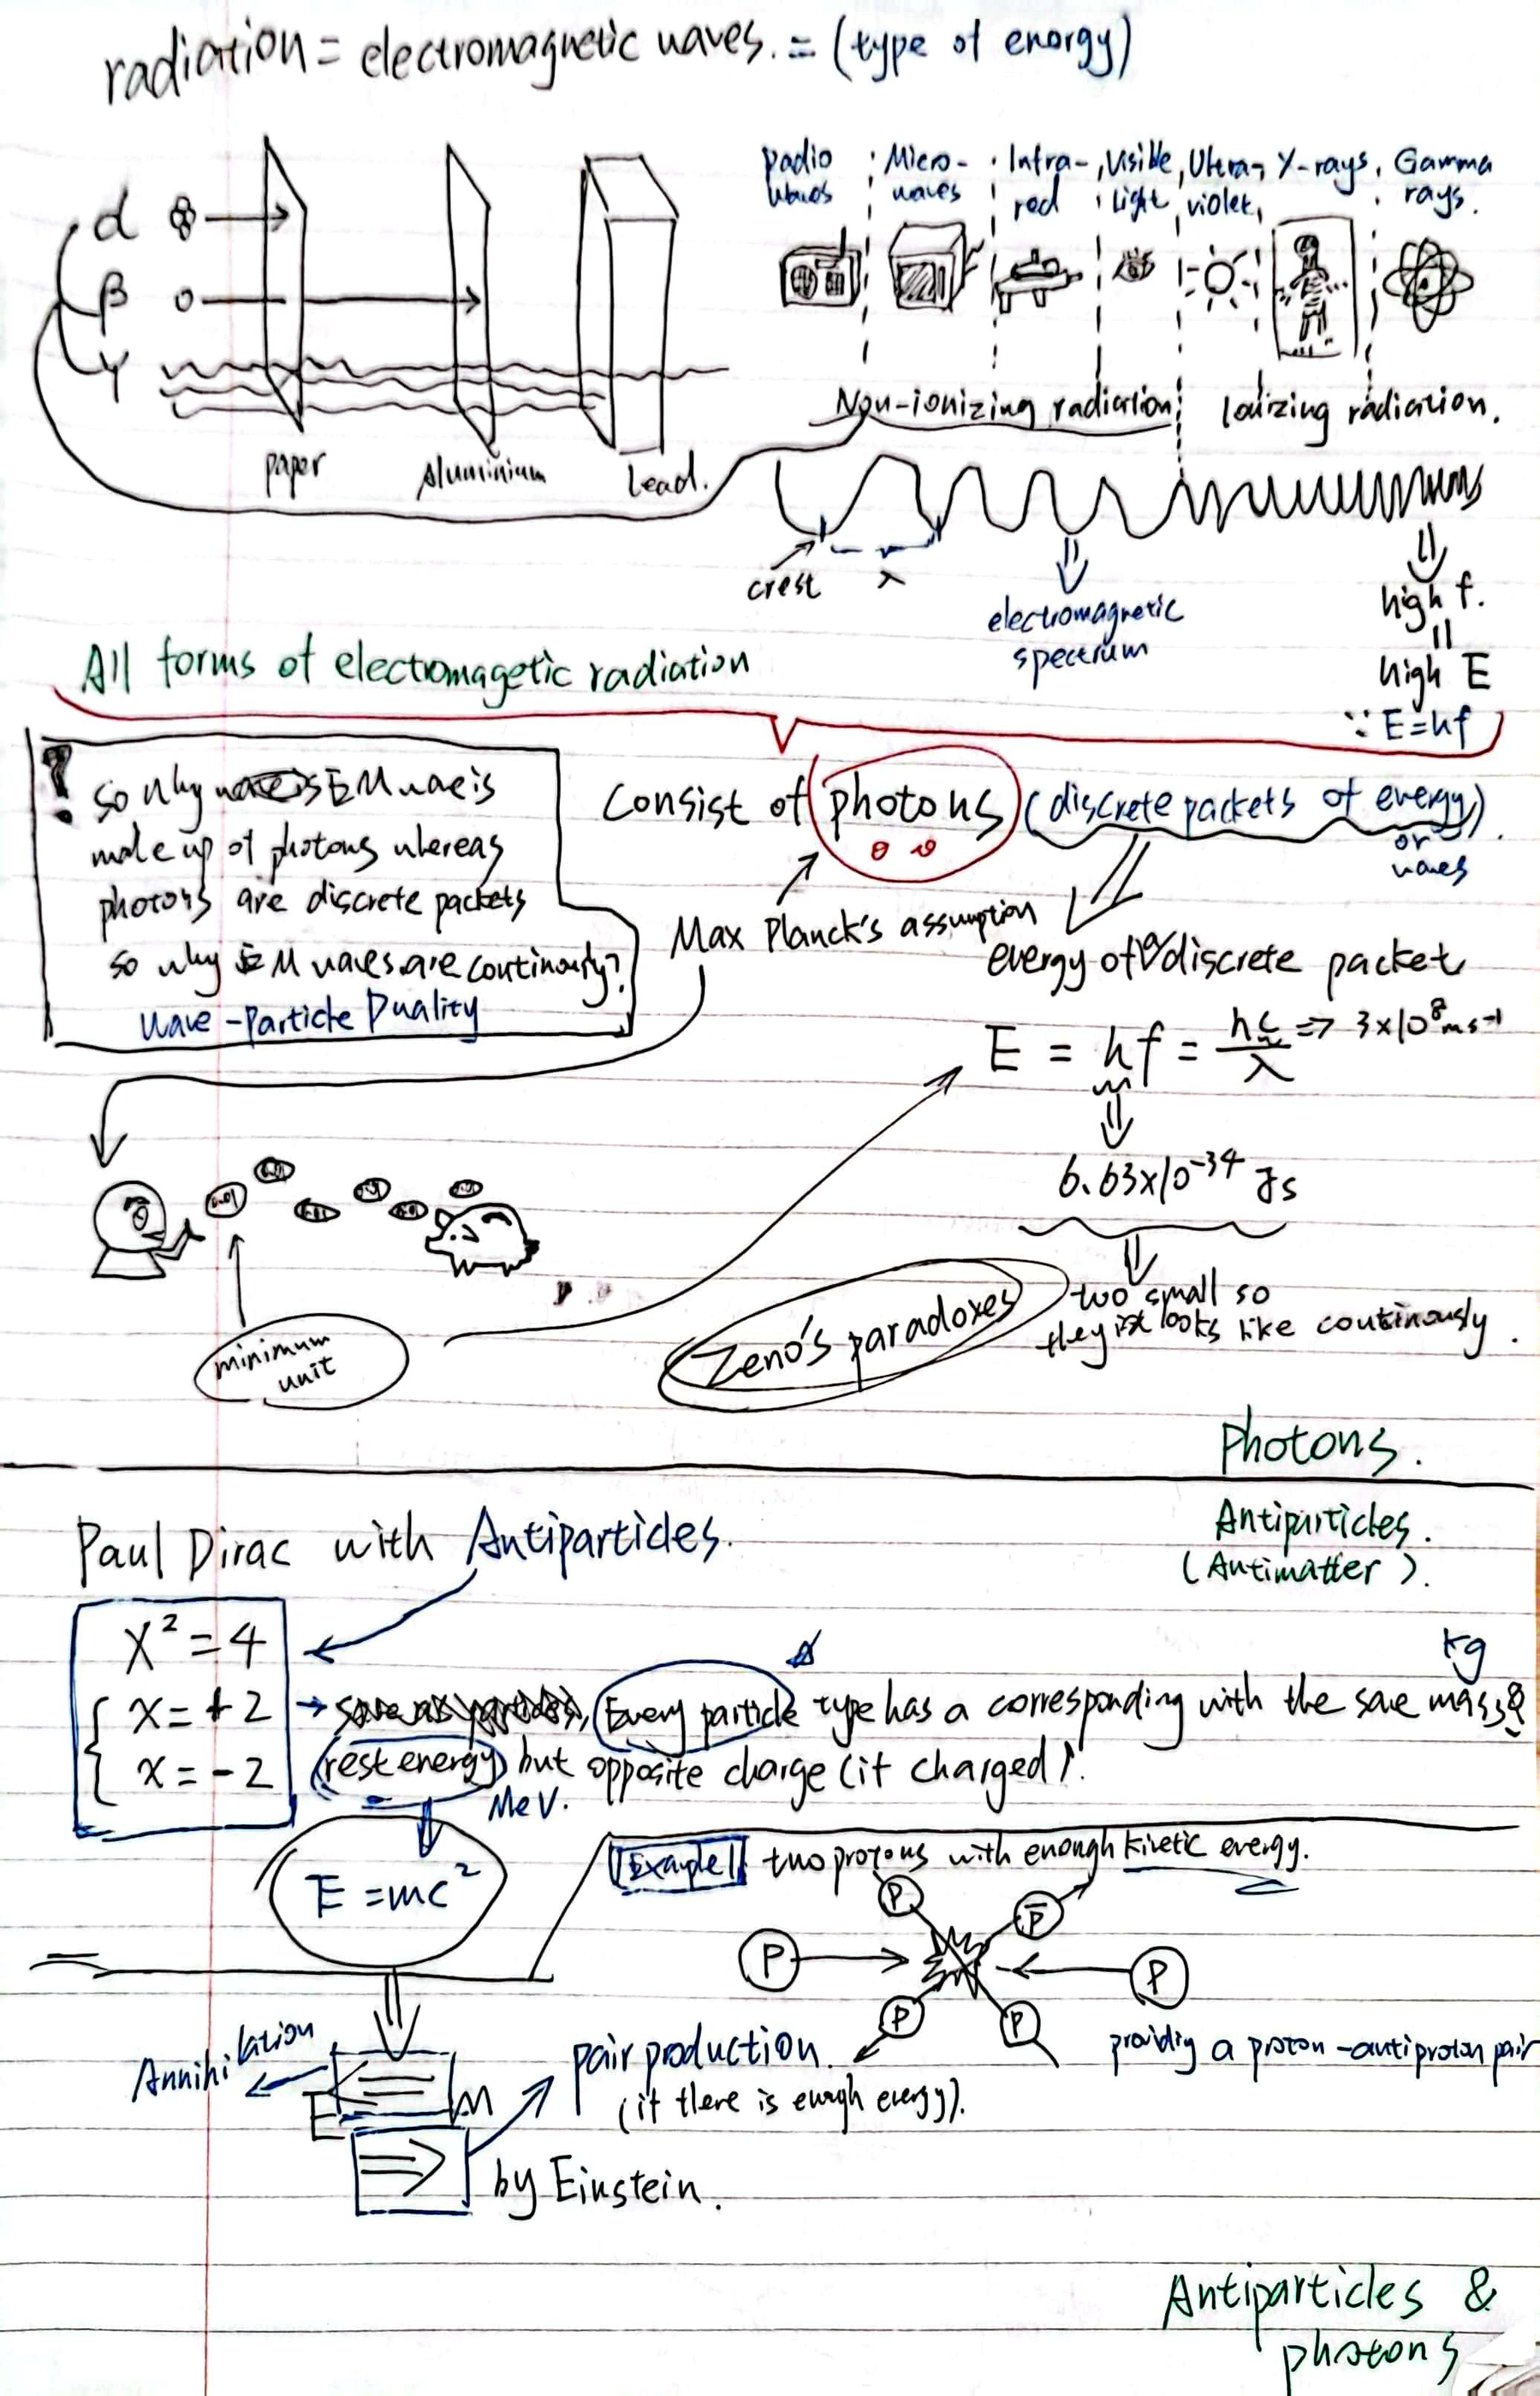 radiation = electromagnetic waves. = (type of energy)
α
β
γ
paper
Aluminium
Lead.
Radio waves
Micro-waves
Infra-red
Visible Light
Ultra-violet
X-rays
Gamma rays.
Non-ionizing radiation
Ionizing radiation.
crest
λ
electromagnetic
spectrum
high f.
||
high E
∵ E=hf
All forms of electromagetic radiation
Consist of photons (discrete packets of energy).
or
waves
! so why is EM wave is
made up of photons whereas
photons are discrete packets
so why EM waves are continously?
Wave-Particle Duality
Max Planck's assumption
energy of a discrete packet
E = hf = hc/λ => 3×10⁸ms⁻¹
6.63×10⁻³⁴ Js
two small so
they looks like continously.
minimum
unit
Zeno's paradoxes
Photons.
Antiparticles.
(Antimatter).
Paul Dirac with Antiparticles.
X² = 4
x = +2
x = -2
kg
Every particle type has a corresponding with the same mass &
rest energy but opposite charge (if charged).
MeV.
E = mc²
Example two protons with enough kinetic energy.
P
P̄
P
P
P
P
providing a proton-antiproton pair
Annihilation
E
M
pair production.
(if there is enough energy).
by Einstein.
Antiparticles &
photons